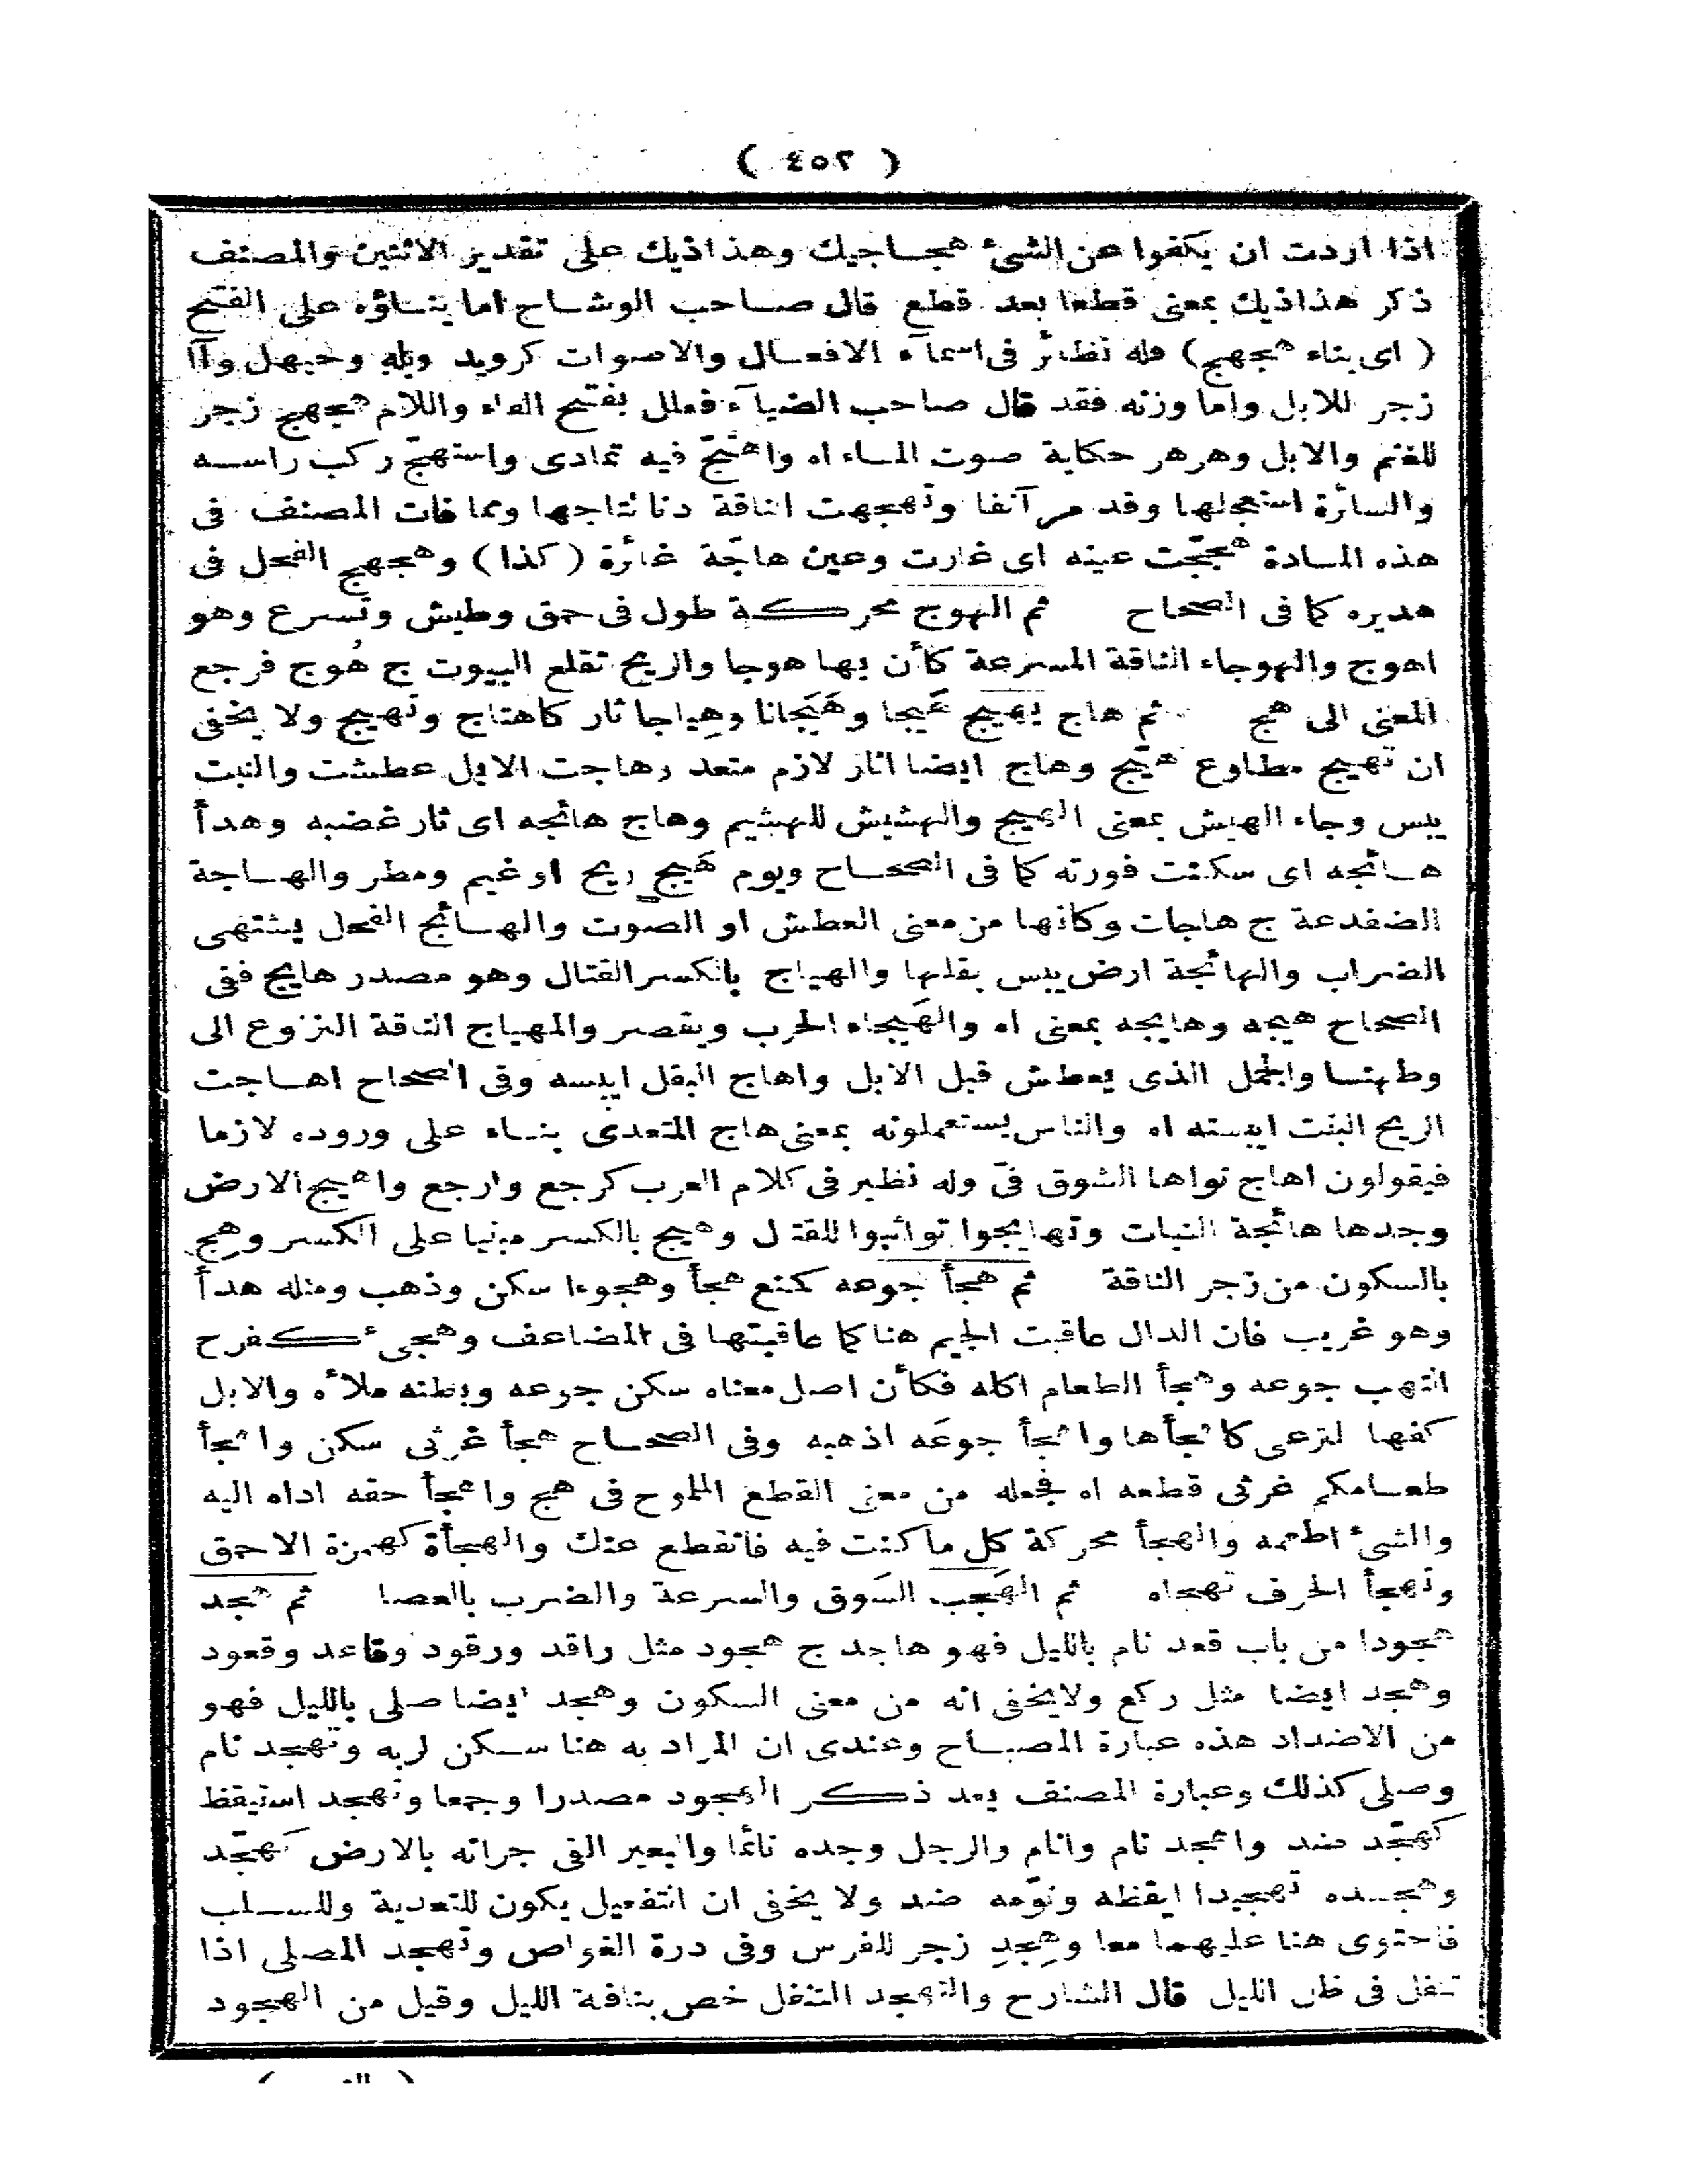 ( ٤٥٢ )
اذا اردت ان يكفوا عن الشئ هجاجيك وهذاذيك على تقدير الاثنين والمصنف
ذكر هذاذيك بمعنى قطعا بعد قطع قال صاحب الوشاح اما بناؤه على الفتح
( اى بناء هجهج) فله نظائر فى اسمآء الافعال والاصوات كرويد وبله وحيهل وآا
زجر للابل واما وزنه فقد قال صاحب الضيآء فعلل بفتح الفاء واللام هجهج زجر
للغنم والابل وهرهر حكاية صوت الماء اه واهتج فيه تمادى واستهج ركب راسه
والسائرة استعجلها وقد مر آنفا وتهجهجت الناقة دنا نتاجها ومما فات المصنف فى
هذه المادة هججت عينه اى غارت وعين هاجّة غائرة (كذا) وهجهج الفحل فى
هديره كما فى الصحاح ثم الهوج محركة طول فى حمق وطيش وتسرع وهو
اهوج والهوجاء الناقة المسرعة كأن بها هوجا والريح تقلع البيوت ج هُوج فرجع
المعنى الى هج ثم هاج يهيج هَيجا وهَيَجانا وهِياجا ثار كاهتاج وتهيج ولا يخفى
ان تهيج مطاوع هيّج وهاج ايضا اثار لازم متعد وهاجت الابل عطشت والنبت
يبس وجاء الهيش بمعنى الهيج والهشيش للهشيم وهاج هائجه اى ثار غضبه وهدأ
هائجه اى سكنت فورته كما فى الصحاح ويوم هَيج ريح او غيم ومطر والهاجة
الضفدعة ج هاجات وكانها من معنى العطش او الصوت والهائج الفحل يشتهى
الضراب والهائجة ارض يبس بقلها والهياج بالكسر القتال وهو مصدر هايج ففى
الصحاح هيجه وهايجه بمعنى اه والهَيجاء الحرب ويقصر والمهياج الناقة النزوع الى
وطنها والجمل الذى يعطش قبل الابل واهاج البقل ايبسه وفى الصحاح اهاجت
الريح النبت ايبسته اه والناس يستعملونه بمعنى هاج المتعدى بناء على وروده لازما
فيقولون اهاج نواها الشوق فىّ وله نظير فى كلام العرب كرجع وارجع واهيج الارض
وجدها هائجة النبات وتهايجوا تواثبوا للقتال وهيج بالكسر مبنيا على الكسر وهِج
بالسكون من زجر الناقة ثم هجأ جوعه كمنع هجأ وهجوءا سكن وذهب ومثله هدأ
وهو غريب فان الدال عاقبت الجيم هنا كما عاقبتها فى المضاعف وهجئ كفرح
التهب جوعه وهجأ الطعام اكله فكأن اصل معناه سكن جوعه وبطنه ملأه والابل
كفها لترعى كاهجأها واهجأ جوعَه اذهبه وفى الصحاح هجأ غرثى سكن واهجأ
طعامكم غرثى قطعه اه فجعله من معنى القطع الملموح فى هج واهجأ حقه اداه اليه
والشئ اطعمه والهجأ محركة كل ما كنت فيه فانقطع عنك والهجأة كهمزة الاحمق
وتهجأ الحرف تهجاه ثم الهَجب السَوق والسرعة والضرب بالعصا ثم هجد
هجودا من باب قعد نام بالليل فهو هاجد ج هجود مثل راقد ورقود وقاعد وقعود
وهجد ايضا مثل ركع ولا يخفى انه من معنى السكون وهجد ايضا صلى بالليل فهو
من الاضداد هذه عبارة المصباح وعندى ان المراد به هنا سكن لربه وتهجد نام
وصلى كذلك وعبارة المصنف بعد ذكر الهجود مصدرا وجمعا وتهجد استيقظ
كهجّد ضد واهجد نام وانام والرجل وجده نائما والبعير القى جرانه بالارض كهجّد
وهجده تهجيدا ايقظه ونوّمه ضد ولا يخفى ان التفعيل يكون للتعدية وللسلب
فاحتوى هنا عليهما معا وهِجِد زجر للفرس وفى درة الغواص وتهجد المصلى اذا
تنفل فى ظل الليل قال الشارح والتهجد التنفل خص بنافلة الليل وقيل من الهجود